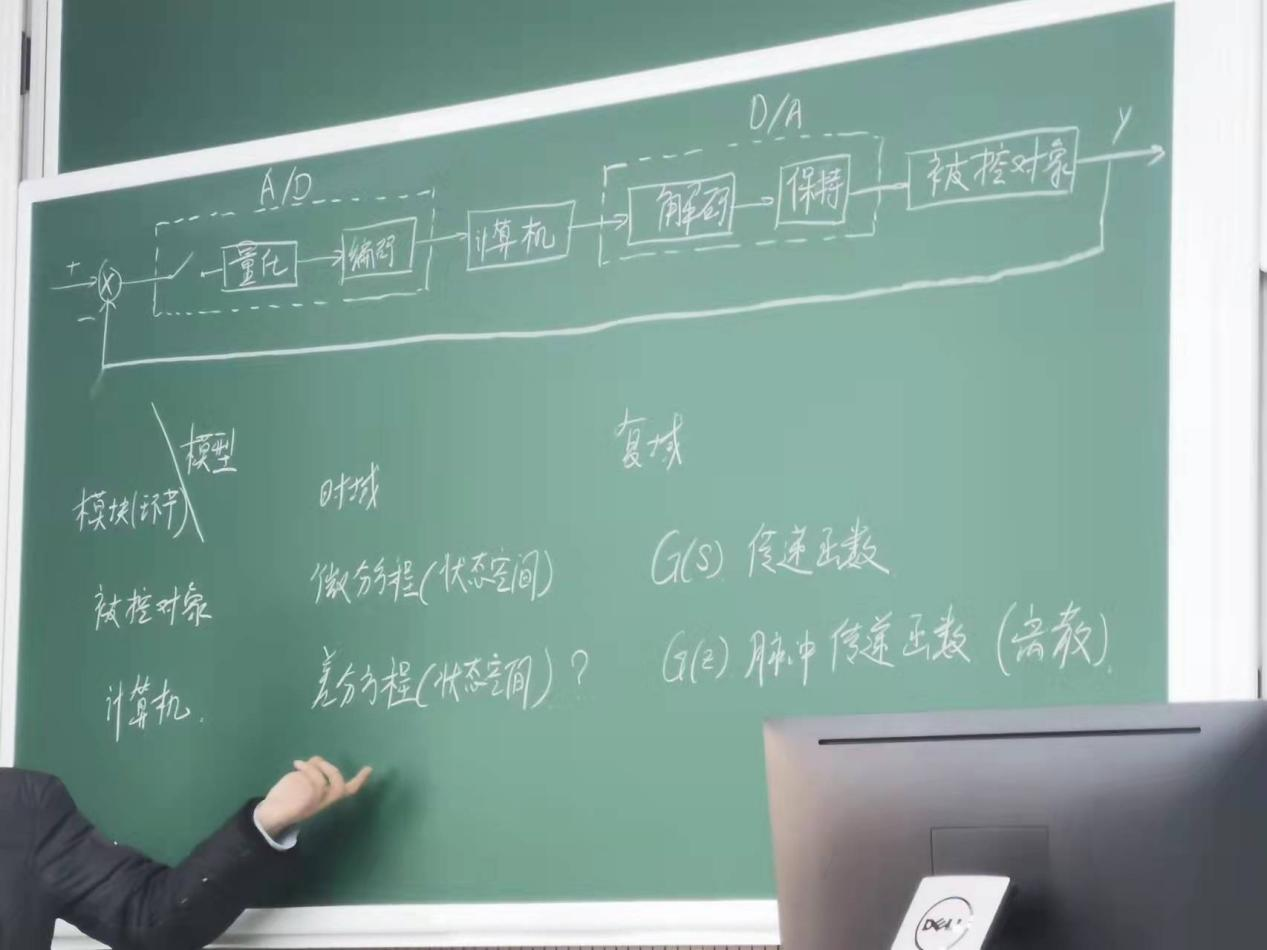 A/D
D/A
+
-
量化
编码
计算机
解码
保持
被控对象
y
模型
模块(环节)
时域
复域
被控对象
微分方程(状态空间)
G(s) 传递函数
计算机.
差分方程(状态空间)?
G(z) 脉冲传递函数(离散).
DELL